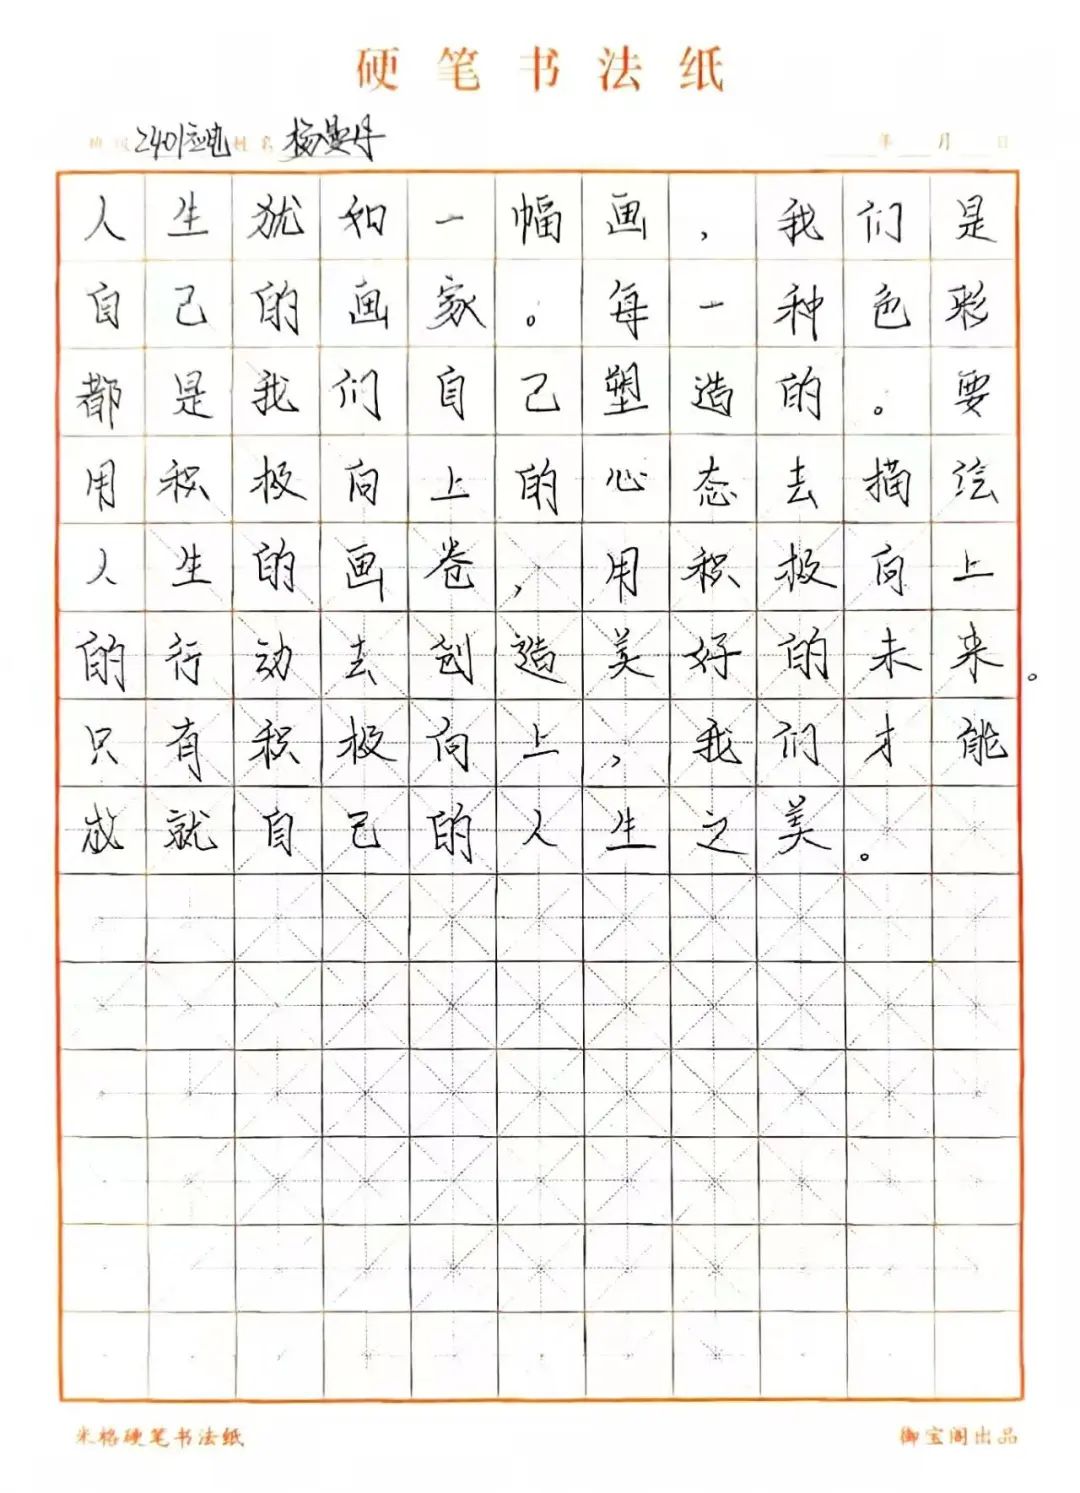 硬笔书法纸
班级 2401应电 姓名 杨曼丹 年 月 日
人生犹如一幅画，我们是
自己的画家。每一种色彩
都是我们自己塑造的。要
用积极向上的心态去描绘
人生的画卷，用积极向上
的行动去创造美好的未来。
只有积极向上，我们才能
成就自己的人生之美。
米格硬笔书法纸 御宝阁出品